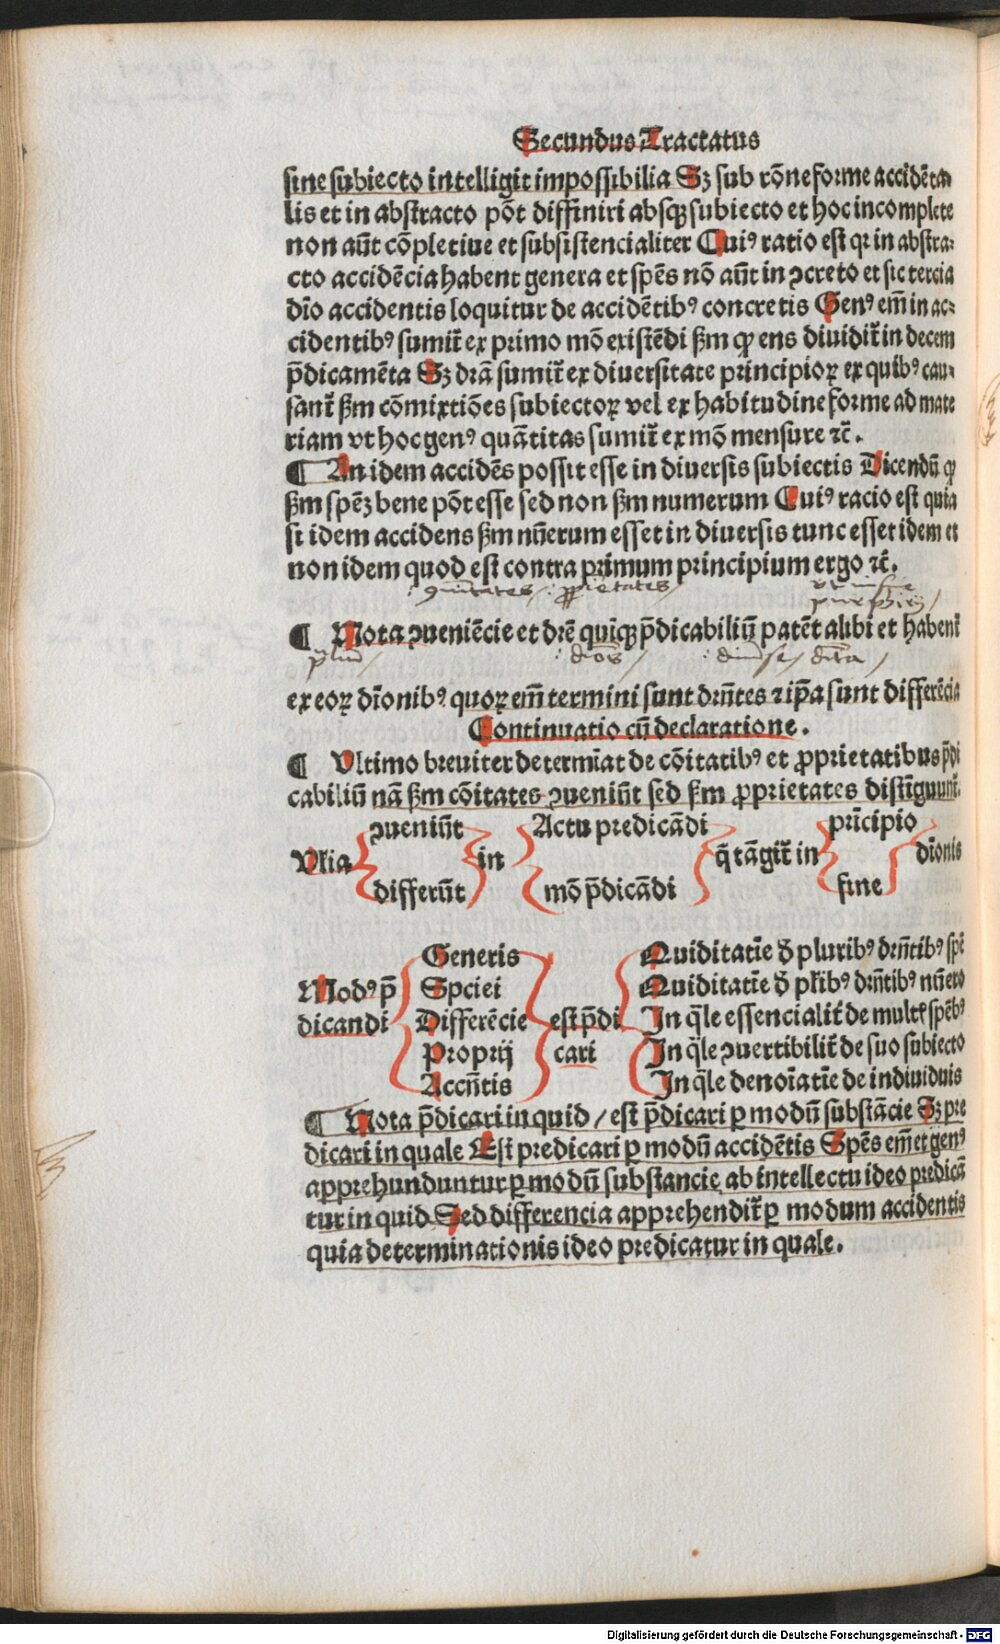 Secundus Tractatus
sine subiecto intelligit impossibilia Sꝫ sub rōne forme accidēta
lis et in abstracto pōt diffiniri absqꝫ subiecto et hoc incomplete
non aūt cōpletiue et subsistencialiter Cuiꝰ ratio est qꝛ in abstra-
cto accidēcia habent genera et spēs nō aūt in ꝯcreto et sic tercia
dīo accidentis loquitur de accidētibꝰ concretis Genꝰ em̄ in ac-
cidentibꝰ sumit᷑ ex primo mō existēdi ẜm ꝙ ens diuidit᷑ in decem
p̄dicamēta Sꝫ dr̄a sumit᷑ ex diuersitate principioꝝ ex quibꝰ cau-
sant᷑ ẜm cōmixtiōes subiectoꝝ vel ex habitudine forme ad mate
riam vt hoc genꝰ quātitas sumit᷑ ex mō mensure ⁊c̄.
¶ An idem accidēs possit esse in diuersis subiectis Dicendū ꝙ
ẜm spēꝫ bene pōt esse sed non ẜm numerum Cuiꝰ racio est quia
si idem accidens ẜm nūerum esset in diuersis tunc esset idem et
non idem quod est contra primum principium ergo ⁊c̄.
ꝯuītates proprietates
purphirij
¶ Nota ꝯueniēcie et dr̄e quīqꝫ p̄dicabiliū patēt alibi et habent᷑
ex eoꝝ dīonibꝰ quoꝝ em̄ termini sunt drn̄tes ⁊ ip̄a sunt differēcia
Continuatio cū declaratione.
¶ Vltimo breuiter determīat de cōitatibꝰ et ꝓprietatibus p̄di
cabiliū nā ẜm cōitates ꝯueniūt sed ẜm ꝓprietates distīguunt᷑.
ꝯueniūt Actu predicādi prīcipio
Vlia in q̄ tāgit᷑ in dīonis
differūt mō p̄dicādi fine
Generis Quiditatīe ꝺ pluribꝰ drn̄tibꝰ spē
Modꝰ p̄ Spciei Quiditatīe ꝺ pl'ibꝰ drn̄tibꝰ nūero
dicandi Differēcie est p̄di In q̄le essencialit᷑ de mult᷑ spēbꝰ
Proprij cari In q̄le ꝯuertibilit᷑ de suo subiecto
Accn̄tis In q̄le denoīatīe de indiuiduis
¶ Nota p̄dicari in quid / est p̄dicari ꝑ modū substācie Sꝫ pre
dicari in quale Est predicari ꝑ modū accidētis Spēs em̄ et genꝰ
apprehunduntur ꝑ modū substancie ab intellectu ideo predicā
tur in quid Sed differencia apprehendit᷑ ꝑ modum accidentis
quia determinationis ideo predicatur in quale.
Digitalisierung gefördert durch die Deutsche Forschungsgemeinschaft - DFG